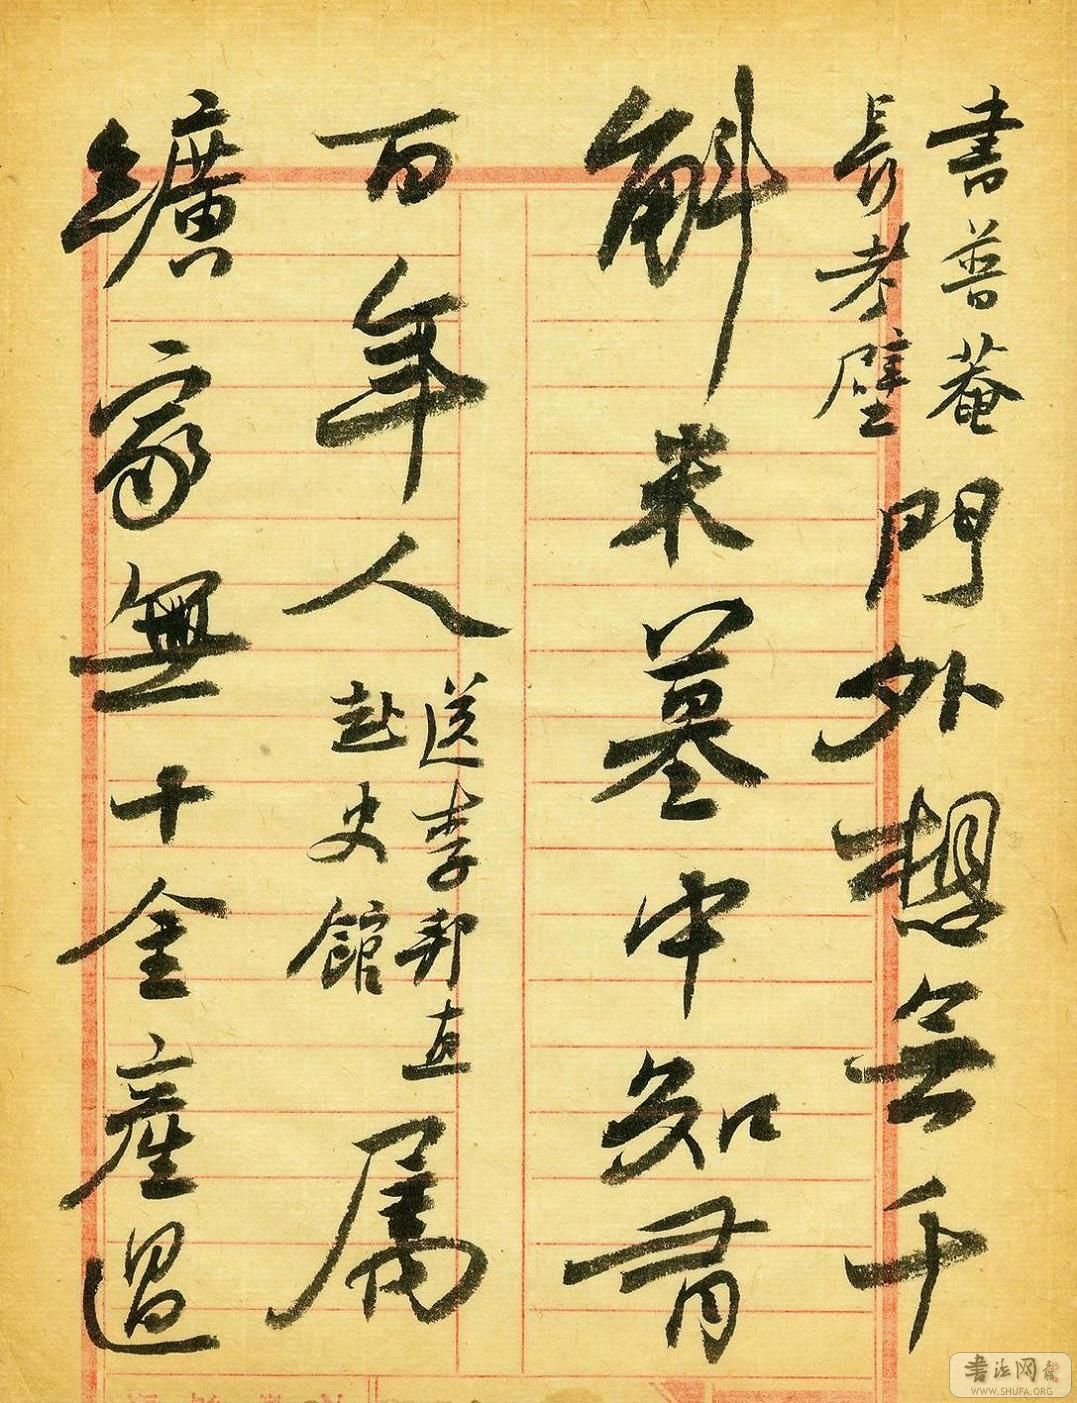 書普菴
長老壁
門外想無千
斛米墓中知有
百年人
送李邦直
赴史館
属
纊家無十金產過
書法网
WWW.SHUFA.ORG